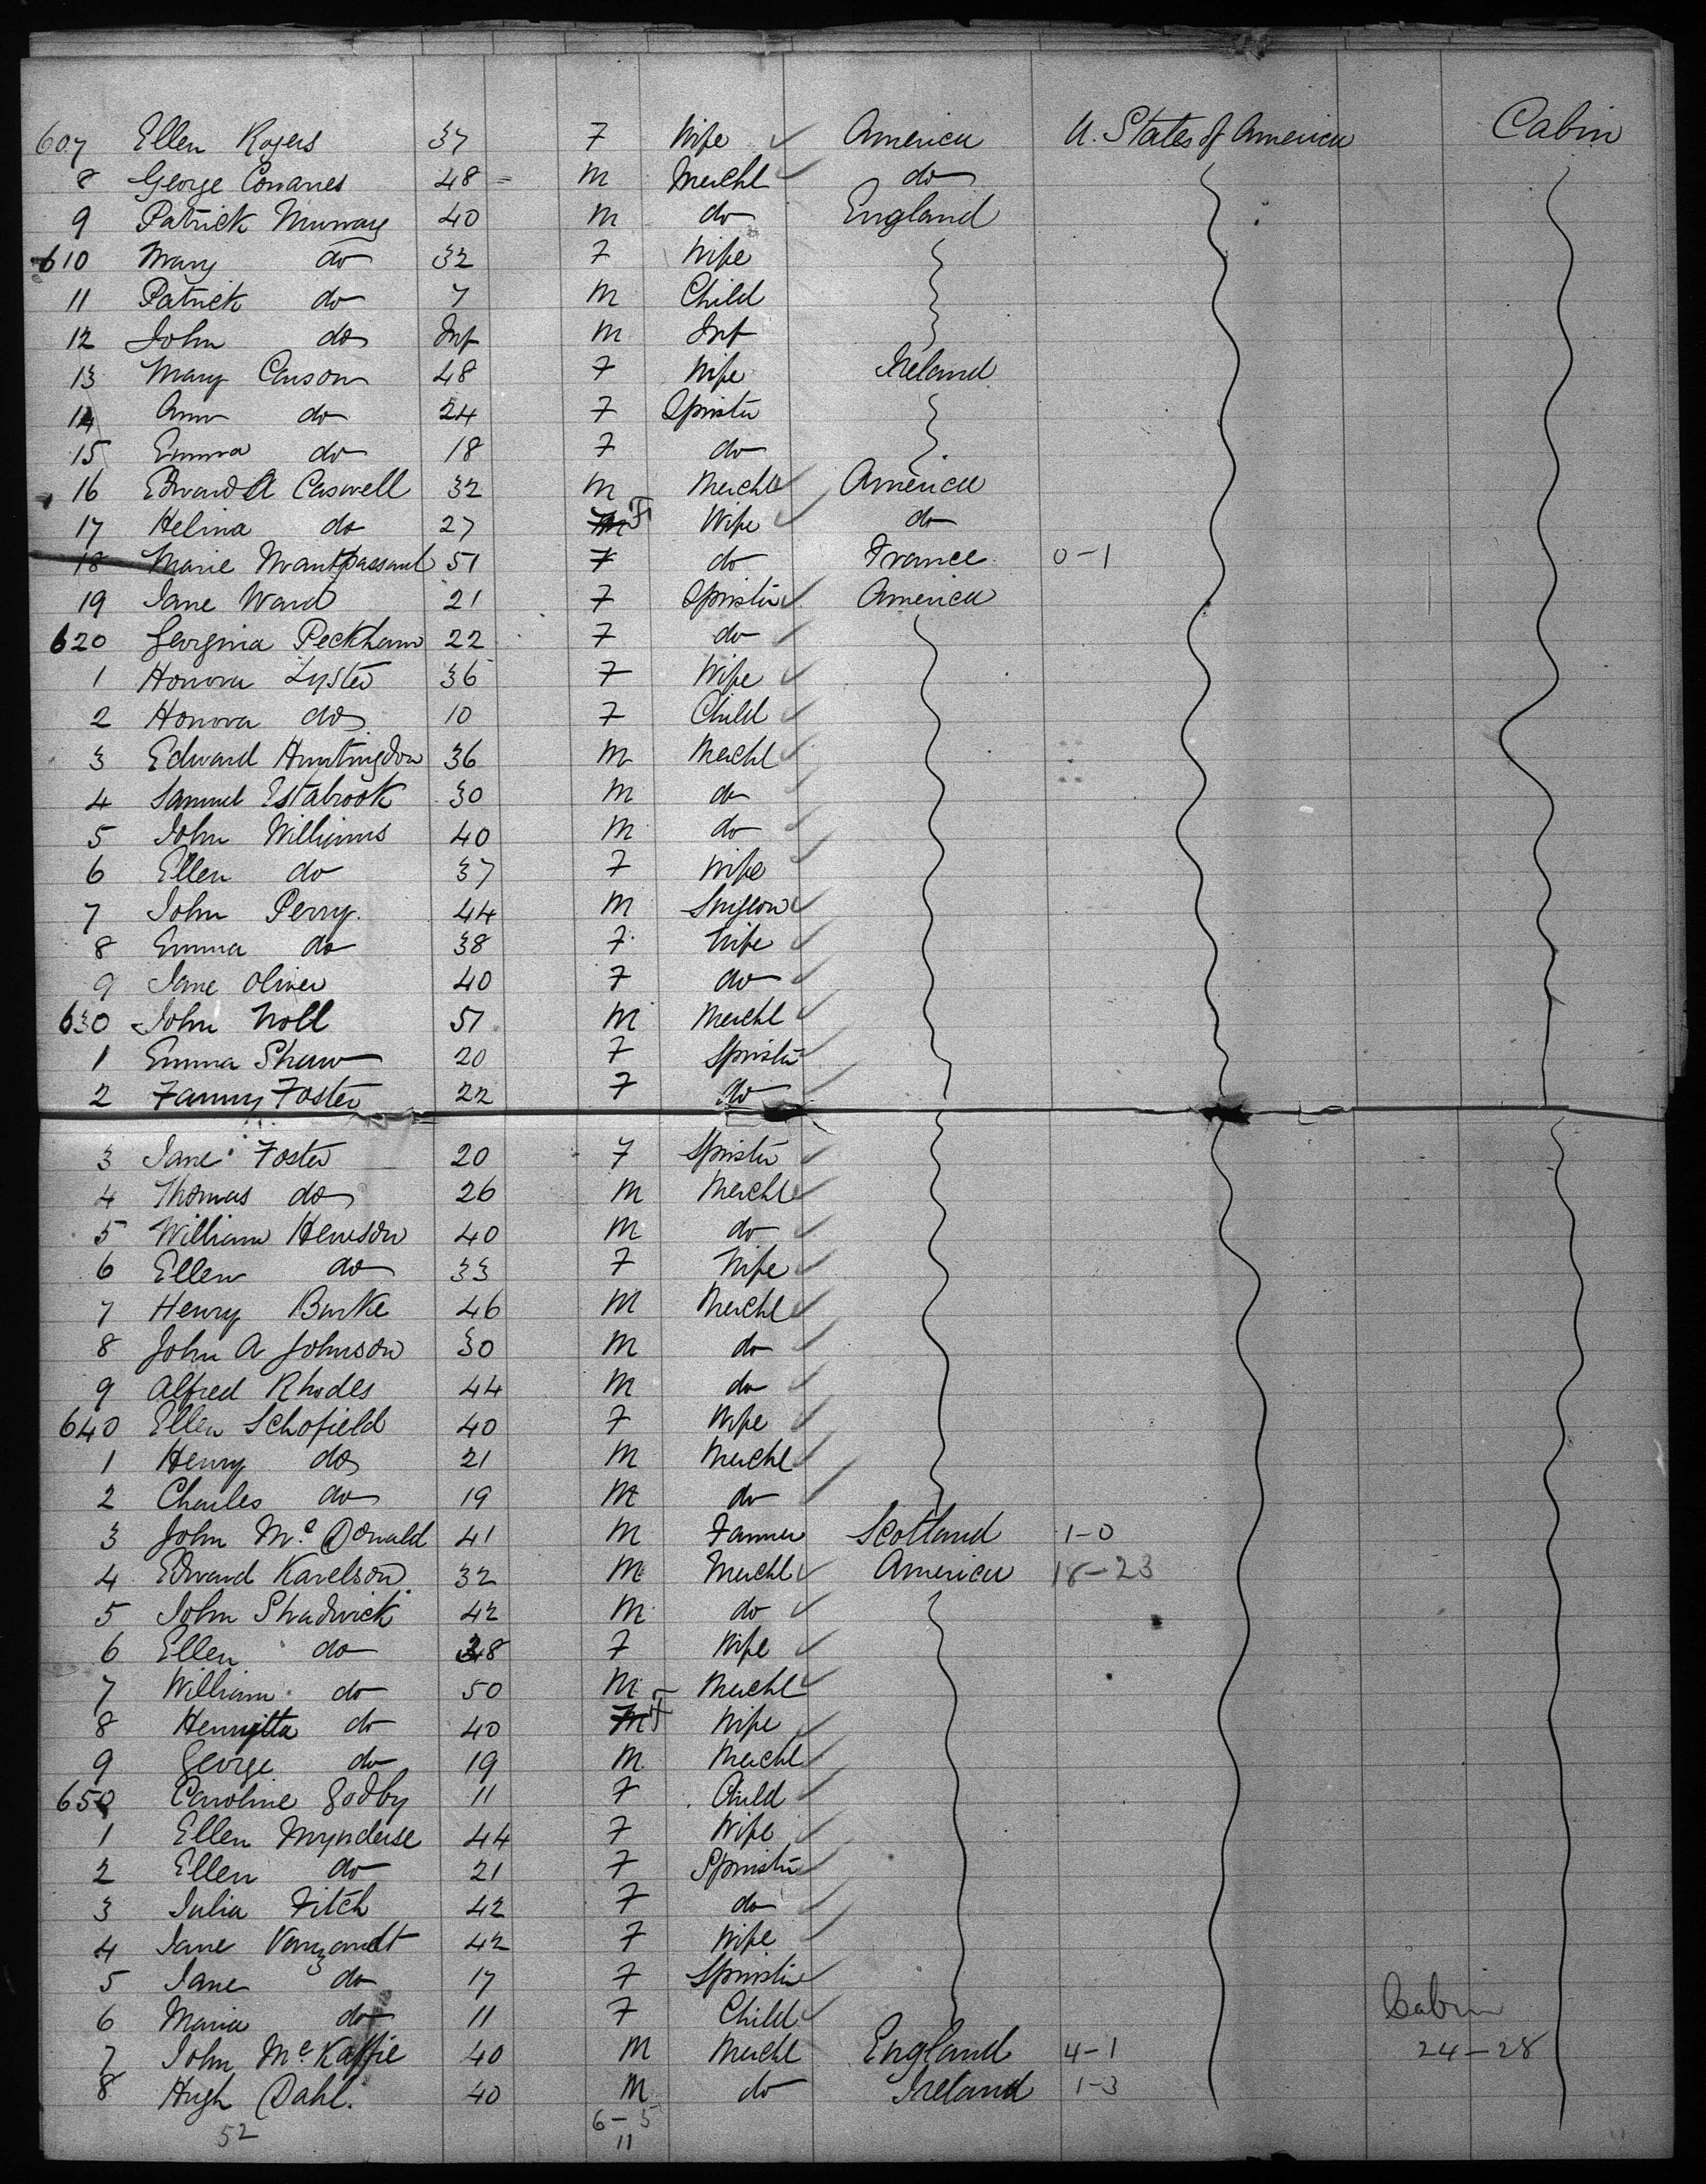 607 Ellen Rogers 37 F Wife America U. States of America Cabin
8 George Conanes 48 M Mercht do
9 Patrick Murray 40 M do England
610 Mary do 32 F Wife
11 Patrick do 7 M Child
12 John do Inf M Inf
13 Mary Carson 48 F Wife Ireland
14 Ann do 24 F Spinstr
15 Emma do 18 F do
16 Edward A Caswell 32 M Mercht America
17 Helina do 27 F Wife do
18 Marie 51 F do France 0-1
19 Jane Ward 21 F Spinstr America
620 Georgina Peckham 22 F do
1 Honora Lyster 36 F Wife
2 Honora do 10 F Child
3 Edward Huntingdon 36 M Mercht
4 Samuel Estabrook 30 M do
5 John Williams 40 M do
6 Ellen do 37 F Wife
7 John Perry 44 M Surgeon
8 Emma do 38 F Wife
9 Jane Oliver 40 F do
630 John Noll 51 M Mercht
1 Emma Shaw 20 F Spinstr
2 Fanny Foster 22 F do
3 Jane Foster 20 F Spinstr
4 Thomas do 26 M Mercht
5 William Hewson 40 M do
6 Ellen do 33 F Wife
7 Henry Burke 46 M Mercht
8 John A Johnson 30 M do
9 Alfred Rhodes 44 M do
640 Ellen Schofield 40 F Wife
1 Henry do 21 M Mercht
2 Charles do 19 M do
3 John Mc Donald 41 M Farmer Scotland 1-0
4 Edward Karelson 32 M Mercht America 18-23
5 John Shadwick 42 M do
6 Ellen do 38 F Wife
7 William do 50 M Mercht
8 Henrietta do 40 F Wife
9 George do 19 M Mercht
650 Caroline Godby 11 F Child
1 Ellen Mynderse 44 F Wife
2 Ellen do 21 F Spinstr
3 Julia Fitch 42 F do
4 Jane Vanzandt 42 F Wife
5 Jane do 17 F Spinstr
6 Maria do 11 F Child Cabin
7 John Mc Kaffie 40 M Mercht England 4-1 24-28
8 Hugh Dahl. 40 M do Ireland 1-3
52 6-5
11